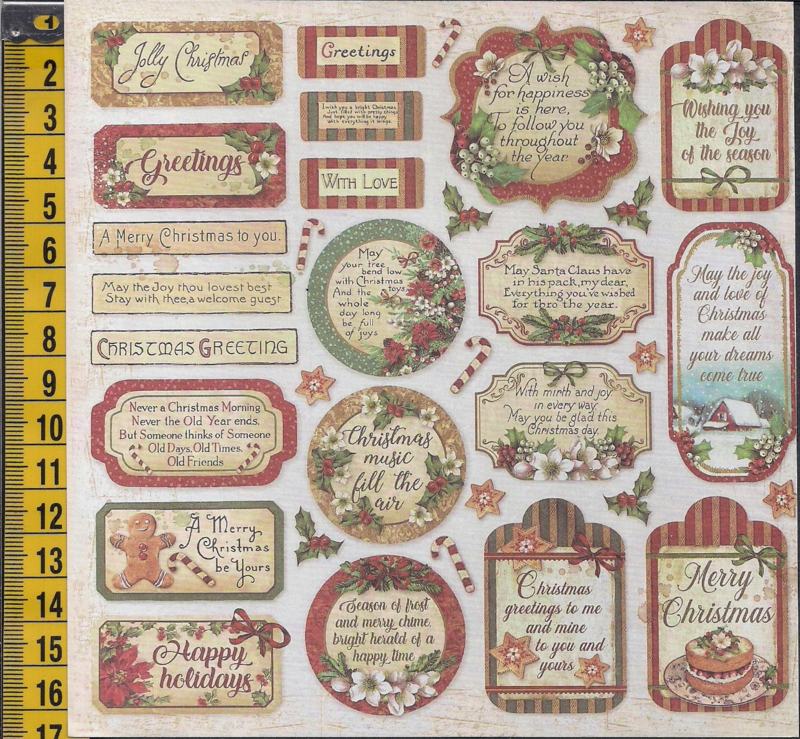 1
2
3
4
5
6
7
8
9
10
11
12
13
14
15
16
17
Jolly Christmas
Greetings
A Merry Christmas to you.
May the Joy thou lovest best
Stay with thee, a welcome guest
CHRISTMAS GREETING
Never a Christmas Morning
Never the Old Year ends,
But Someone thinks of Someone
Old Days, Old Times,
Old Friends
A Merry
Christmas
be Yours
Happy
holidays
Greetings
I wish you a bright Christmas
Just filled with pretty things
And hope you will be happy
with everything it brings.
WITH LOVE
May
your tree
bend low
with Christmas
And the toys
whole
day long
be full
of joys
Christmas
music
fill the
air
Season of frost
and merry chime,
bright herald of a
happy time
A wish
for happiness
is here,
To follow you
throughout
the year
May Santa Claus have
in his pack, my dear,
Everything you've wished
for thro the year.
With mirth and joy
in every way
May you be glad this
Christmas day.
Christmas
greetings to me
and mine
to you and
yours
Wishing you
the Joy
of the season
May the joy
and love of
Christmas
make all
your dreams
come true
Merry
Christmas